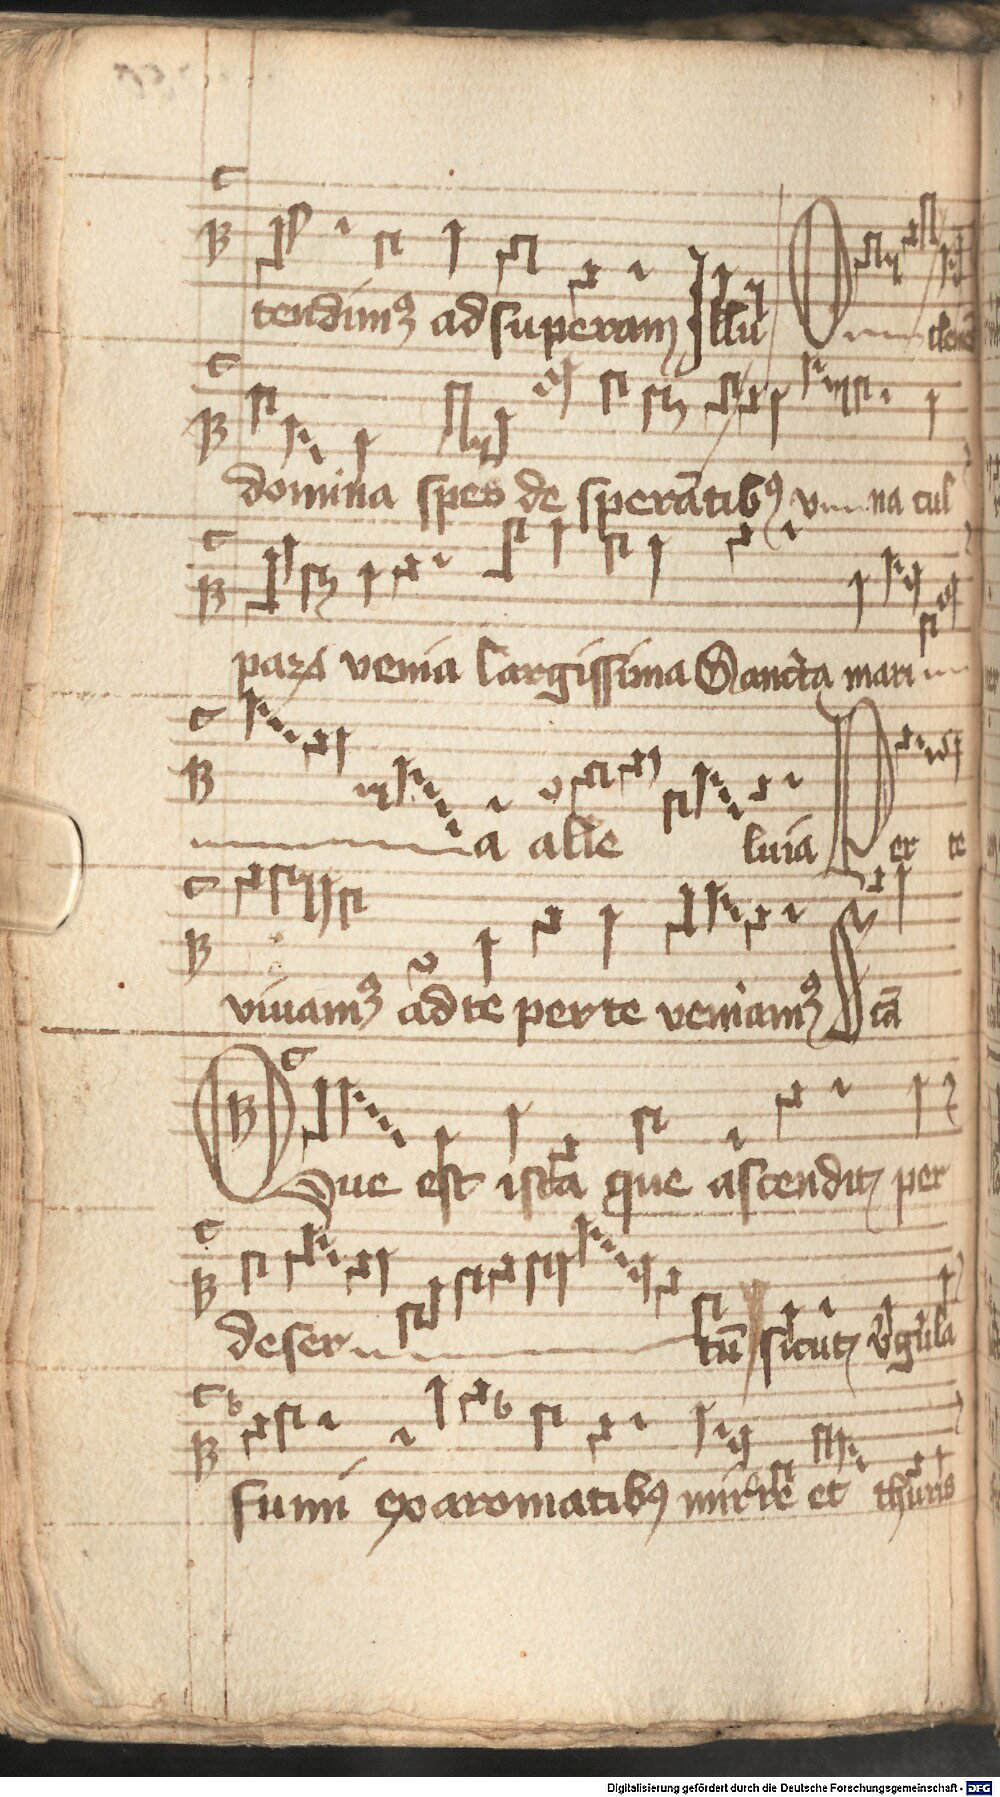 tendimꝰ ad superam Illu O clemēs
domina spes de sperātibꝰ v na cul
pax venia largissima Sancta mari
a alle luia Per te
viuamꝰ ad te per te veniamꝰ Scā
Que est ista que ascendit per
deser tū sicut v̓gula
fumi ex aromatibꝰ mirre et thuris
Digitalisierung gefördert durch die Deutsche Forschungsgemeinschaft - DFG